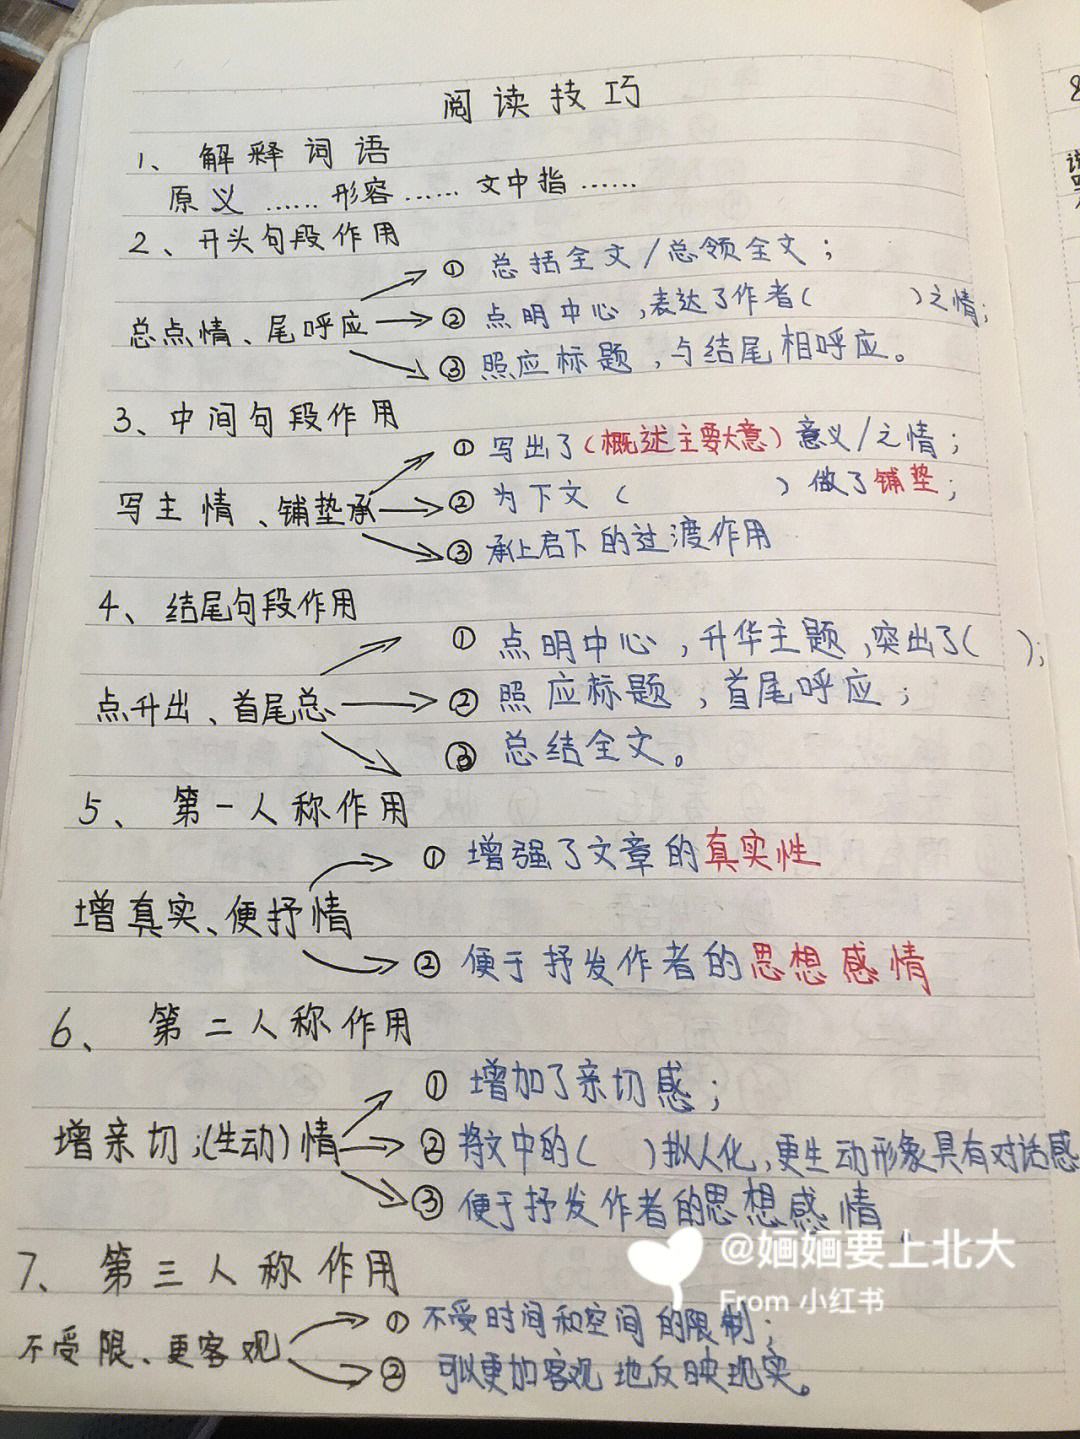 阅读技巧
1、解释词语
原义……形容……文中指……
2、开头句段作用
①总括全文/总领全文;
总点情、尾呼应 ②点明中心,表达了作者( )之情;
③照应标题,与结尾相呼应。
3、中间句段作用
①写出了(概述主要大意)意义/之情;
写主情、铺垫承 ②为下文( )做了铺垫;
③承上启下的过渡作用
4、结尾句段作用
①点明中心,升华主题,突出了( );
点升出、首尾总 ②照应标题;首尾呼应;
③总结全文。
5、第一人称作用
①增强了文章的真实性
增真实、便抒情
②便于抒发作者的思想感情
6、第二人称作用
①增加了亲切感;
增亲切;(生动)情 ②将文中的( )拟人化,更生动形象具有对话感
③便于抒发作者的思想感情
7、第三人称作用
①不受时间和空间的限制;
不受限、更客观
②可以更加客观地反映现实。
@婳婳要上北大
From 小红书